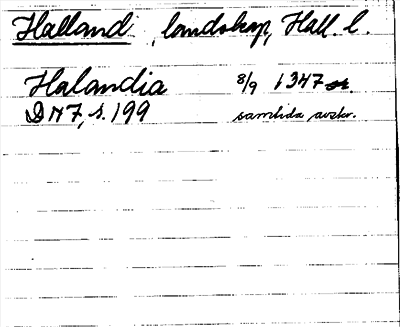 Halland, landskap, Hall. l.
Halandia 8/9 1347
DN 7, s. 199 samtida avskr.